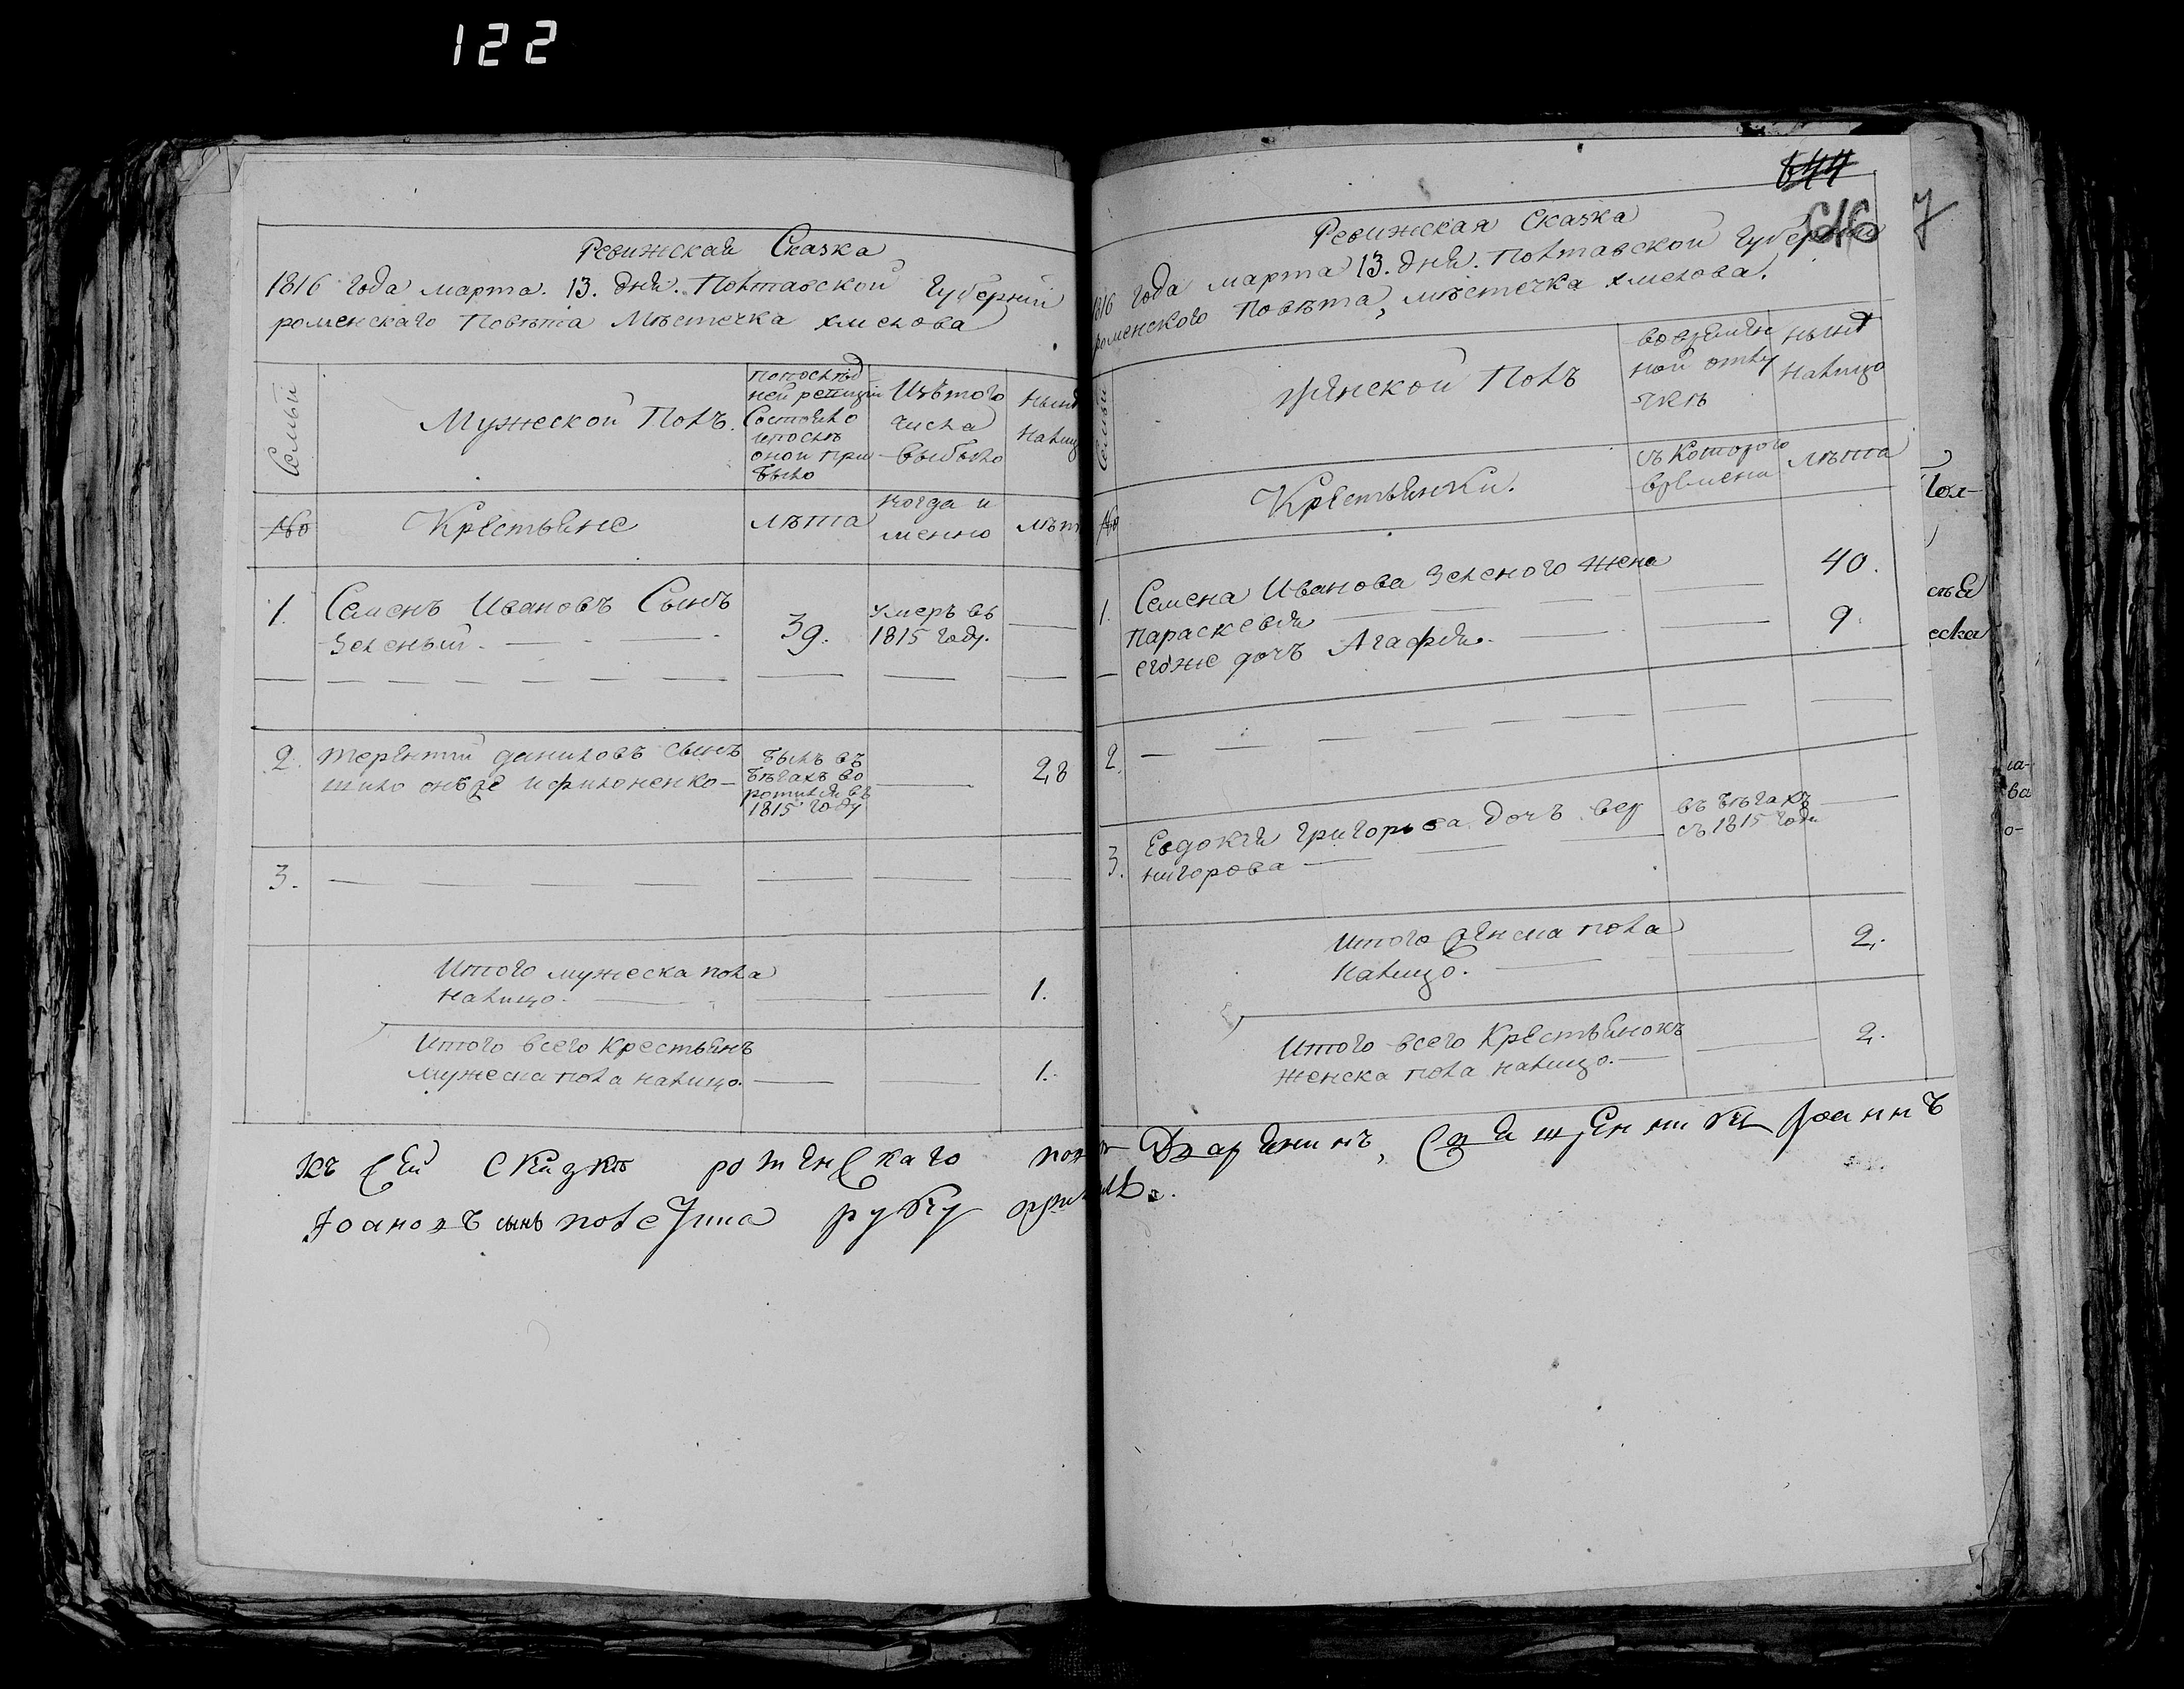 122
Ревижская Сказка
1816 года марта. 13. дня. Полтавской Губерній
роменскаго Повѣта Мѣстечка хмелова
Семьи
Мужеской Полъ.
попослѣд
ней ревизіи
Состояло
ипослѣ
оной при
было
Изътого
числа
выбыло
нынѣ
налиц
№
Крестьяне
лѣта
когда и
менно
лѣт
1.
Семенъ Ивановъ Сынъ
Зеленый.
39.
умеръ въ
1815 году.
2.
терентій даниловъ сынъ
шило онъже ифилоненко
былъ въ
бѣгахъ во
ротился въ
1815 году
28
3.
Итого мужеска пола
налицо.
1.
Итого всего крестьянъ
мужеска пола налицо.
1.
къ сей сказкѣ роменскаго
Іоановъ сынъ руку
644
616
7
Ревижская Сказка
1816 года марта 13. дня. Полтавской Губерніи
роменского Повѣта, мѣстечка хмелова.
Семьи
женской Полъ
вовремен
ной отлу
чкѣ
нынѣ
налицо
№
Крестьянки.
съ которого
времени
лѣта
1.
Семена Иванова Зеленого жена
параскевія
40.
егоже дочъ Агафія.
9.
2.
3.
Евдокія григорьева дочъ вер
нигорова
въ бѣгахъ
съ 1815 года
Итого женска пола
налицо.
2.
Итого всего Крестьянокъ
женска пола налицо.
2.
Священникъ Іоаннъ